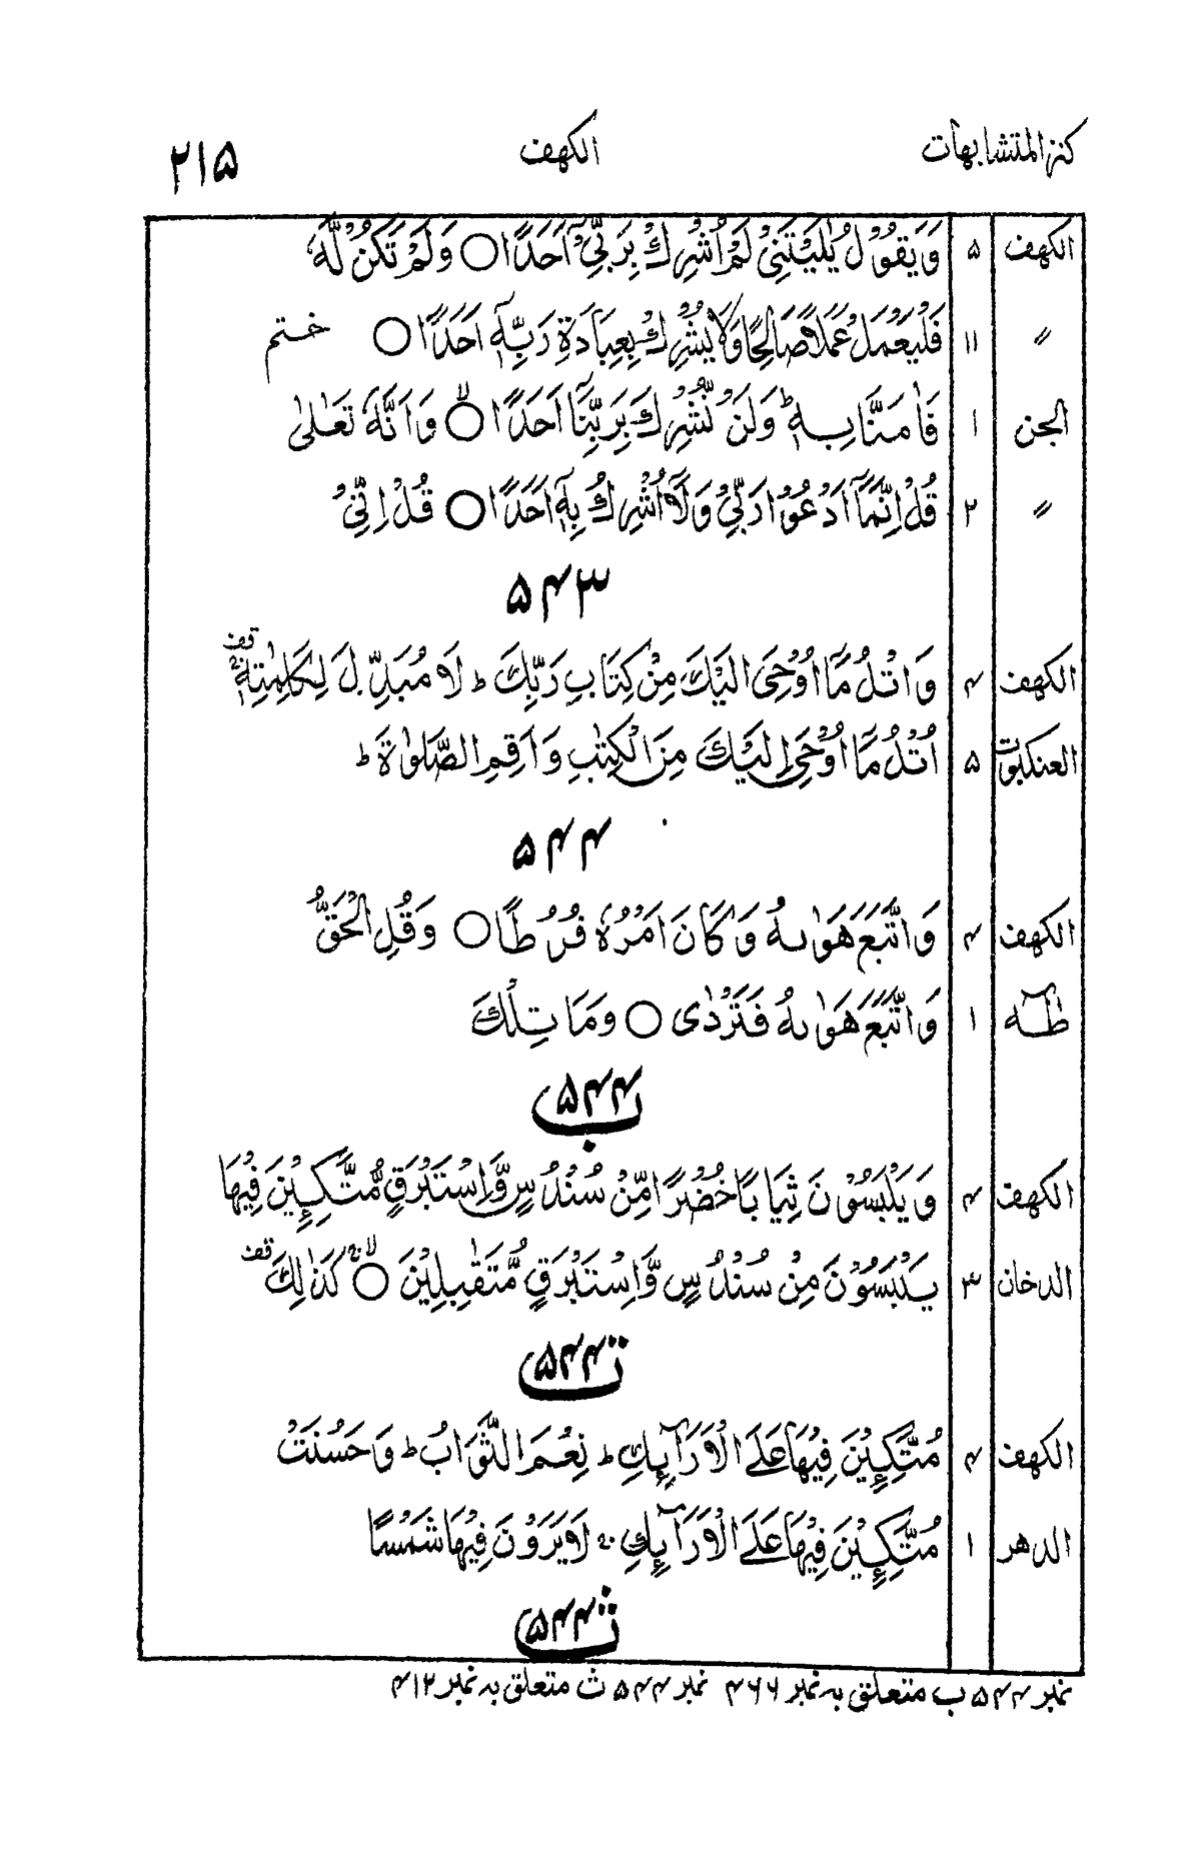 كنز المتشابهات الكهف ۲۱۵
الكهف ۵ وَيَقُوْلُ يٰلَيْتَنِيْ لَمْ اُشْرِكْ بِرَبِّيْٓ اَحَدًا ○ وَلَمْ تَكُنْ لَّهٗ
〃 ۱۱ فَلْيَعْمَلْ عَمَلًا صَالِحًا وَّلَا يُشْرِكْ بِعِبَادَةِ رَبِّهٖٓ اَحَدًا ○ ختم
الجن ۱ فَاٰمَنَّا بِهٖ ؕ وَلَنْ نُّشْرِكَ بِرَبِّنَآ اَحَدًا ○ۙ وَاَنَّهٗ تَعٰلٰى
〃 ۲ قُلْ اِنَّمَآ اَدْعُوْا رَبِّيْ وَلَآ اُشْرِكُ بِهٖٓ اَحَدًا ○ قُلْ اِنِّيْ
۵۴۳
الكهف ۴ وَاتْلُ مَآ اُوْحِيَ اِلَيْكَ مِنْ كِتَابِ رَبِّكَ ؕ لَا مُبَدِّلَ لِكَلِمٰتِهٖ قف
العنكبوت ۵ اُتْلُ مَآ اُوْحِيَ اِلَيْكَ مِنَ الْكِتٰبِ وَاَقِمِ الصَّلٰوةَ ؕ
۵۴۴
الكهف ۴ وَاتَّبَعَ هَوٰىهُ وَكَانَ اَمْرُهٗ فُرُطًا ○ وَقُلِ الْحَقُّ
طٰهٰ ۱ وَاتَّبَعَ هَوٰىهُ فَتَرْدٰى ○ وَمَا تِلْكَ
۵۴۴ ب
الكهف ۴ وَيَلْبَسُوْنَ ثِيَابًا خُضْرًا مِّنْ سُنْدُسٍ وَّاِسْتَبْرَقٍ مُّتَّكِـِٕيْنَ فِيْهَا
الدخان ۳ يَّلْبَسُوْنَ مِنْ سُنْدُسٍ وَّاِسْتَبْرَقٍ مُّتَقٰبِلِيْنَ ○ۙ كَذٰلِكَ قف
۵۴۴ ت
الكهف ۴ مُتَّكِـِٕيْنَ فِيْهَا عَلَى الْاَرَآئِكِ ؕ نِعْمَ الثَّوَابُ ؕ وَحَسُنَتْ
الدهر ۱ مُتَّكِـِٕيْنَ فِيْهَا عَلَى الْاَرَآئِكِ ۚ لَا يَرَوْنَ فِيْهَا شَمْسًا
۵۴۴ ث
نمبر ۵۴۴ ب متعلق بہ نمبر ۴۶۶ نمبر ۵۴۴ ث متعلق بہ نمبر ۴۱۲